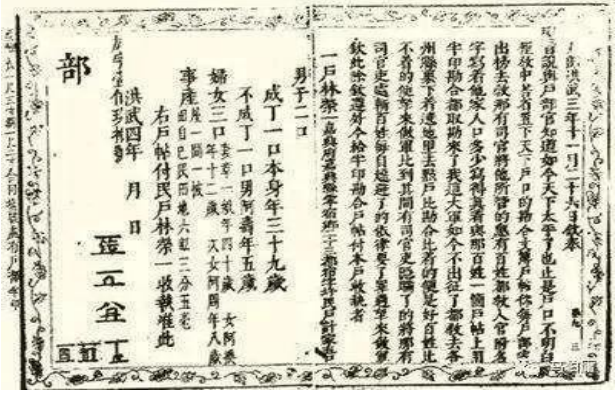 洪武三年十一月二十六日欽奉
聖旨說與户部官知道如今天下太平了也止是户口不明白俚
教中書省置天下户口的勘合文簿户帖你每户部家
出榜去教那有司官將他所管的應有百姓都教入官附名
字寫着他家人口多少寫得真着與那百姓一箇户帖上用
半印勘合都取勘來了我這大軍如今不出征了都教去各
州縣裏下着遶地里去點户比勘合比着的便是好百姓比
不着的便拿來做軍比到其間有司官吏隱瞞了的將那有
司官吏處斬百姓每自躲避了的依律要了罪過拿來做軍
欽此除欽遵外今給半印勘合户帖付本户收執者
一户林榮一嘉興府嘉興縣零宿鄉二十三都宿字圩民户計家五口
男子二口
成丁一口本身年三十九歲
不成丁一口男阿壽年五歲
婦女三口妻章一娘年四十歲 女阿換
年十二歲 次女阿周年八歲
事產屋一間一披
田自己民田地六畝三分五毫
右户帖付民户林榮一收執准此
洪武四年 月 日
部